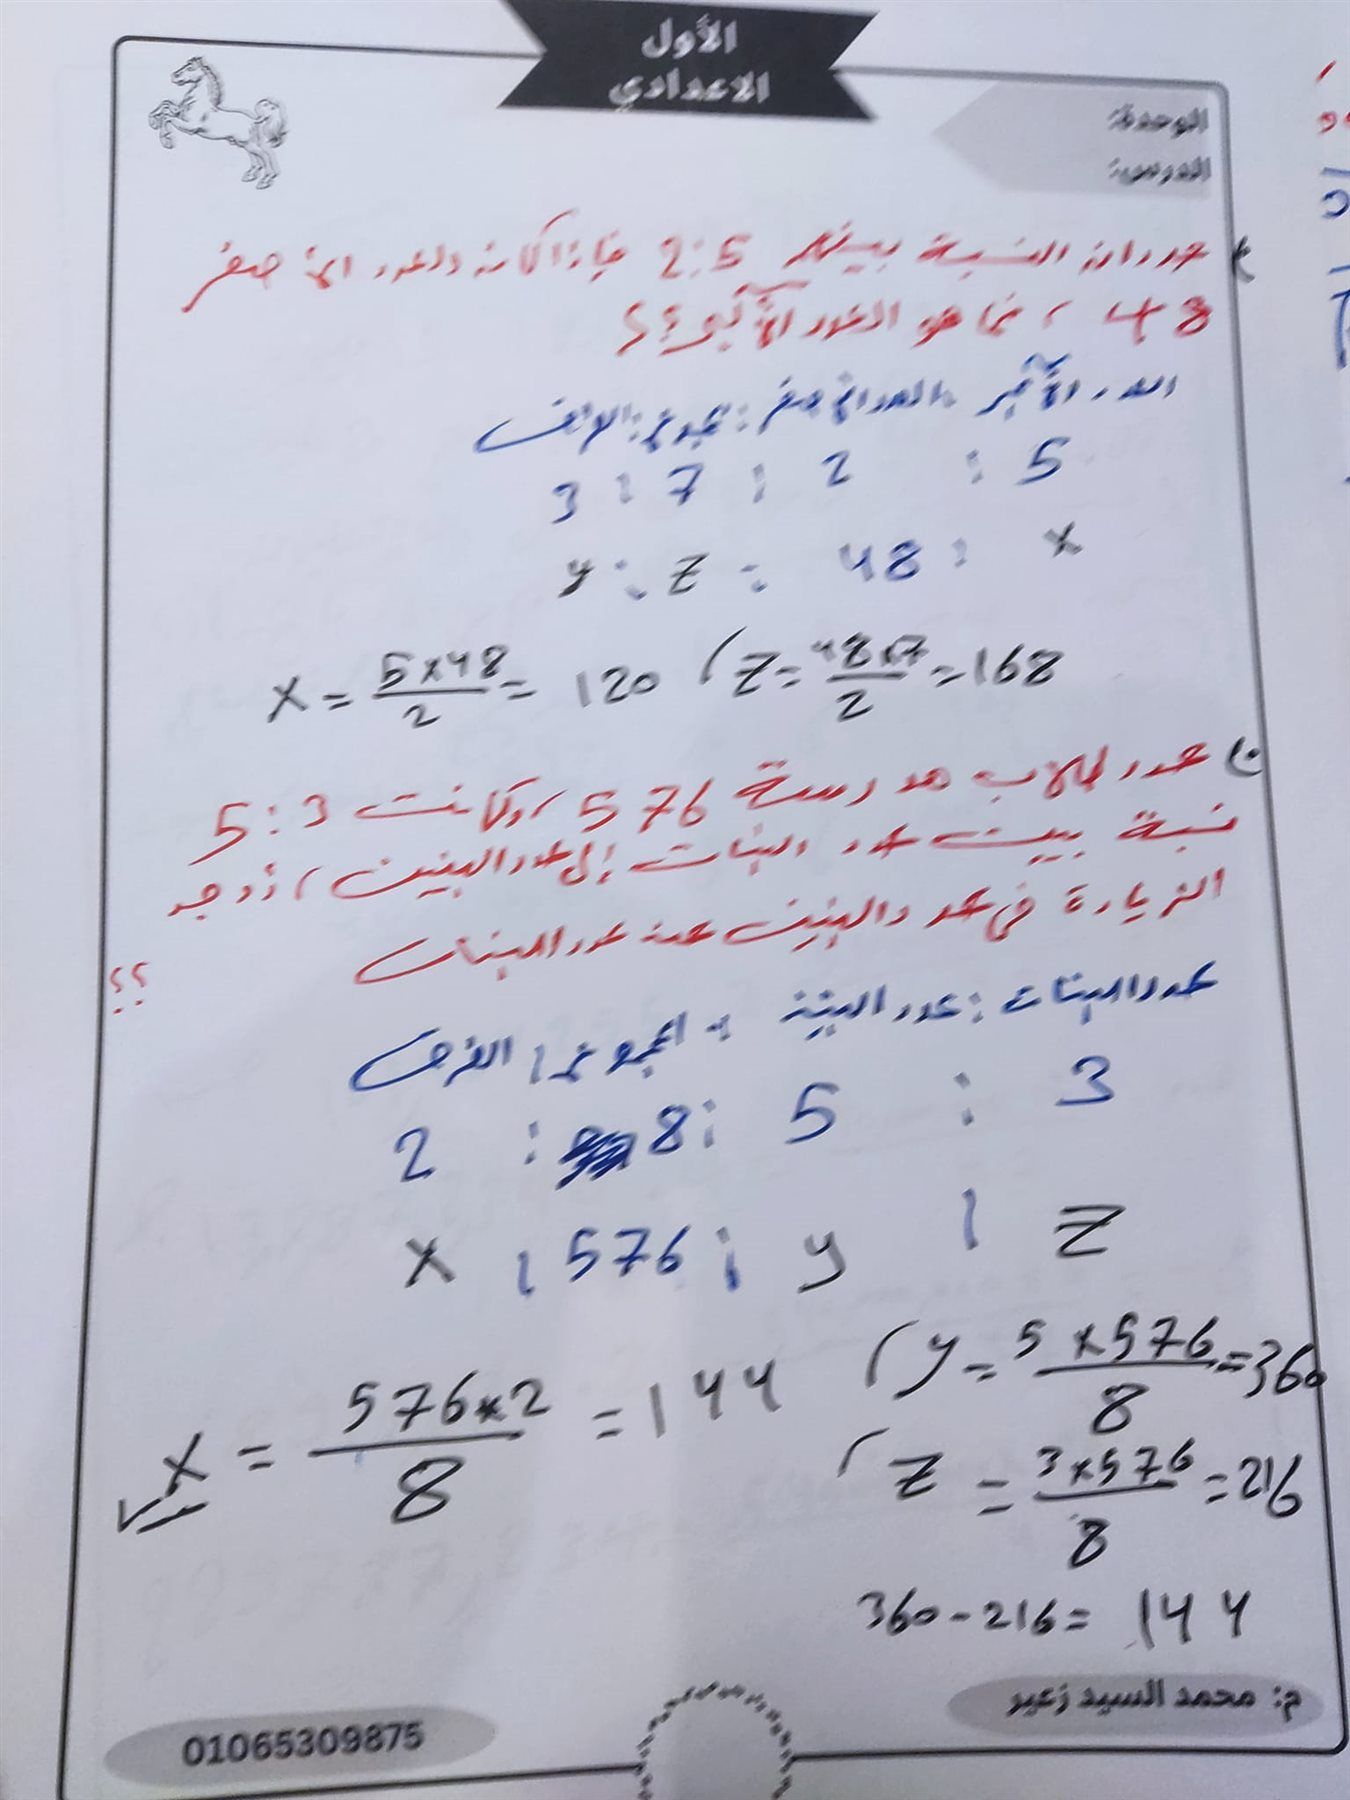 الأول
الاعدادي
الوحدة:
الدرس:
عددان النسبة بينهم 2:5 فإذا كان العدد الأصغر
48 ، فما هو العدد الأكبر؟؟
العدد الأكبر : العدد الأصغر : مجموع : الفرق
5 : 2 : 7 : 3
x : 48 : z : y
x = \frac{5×48}{2} = 120 ( z = \frac{48×7}{2} = 168
عدد طلاب مدرسة 576 ، وكانت 5:3
نسبة بين عدد البنات إلى عدد البنين ، أوجد
الزيادة في عدد البنين عن عدد البنات
؟؟
عدد البنات : عدد البنين : المجموع : الفرق
3 : 5 : 8 : 2
z : y : 576 : x
x = \frac{576×2}{8} = 144 ( y = \frac{5×576}{8} = 360
( z = \frac{3×576}{8} = 216
360-216= 144
م: محمد السيد زعير
01065309875